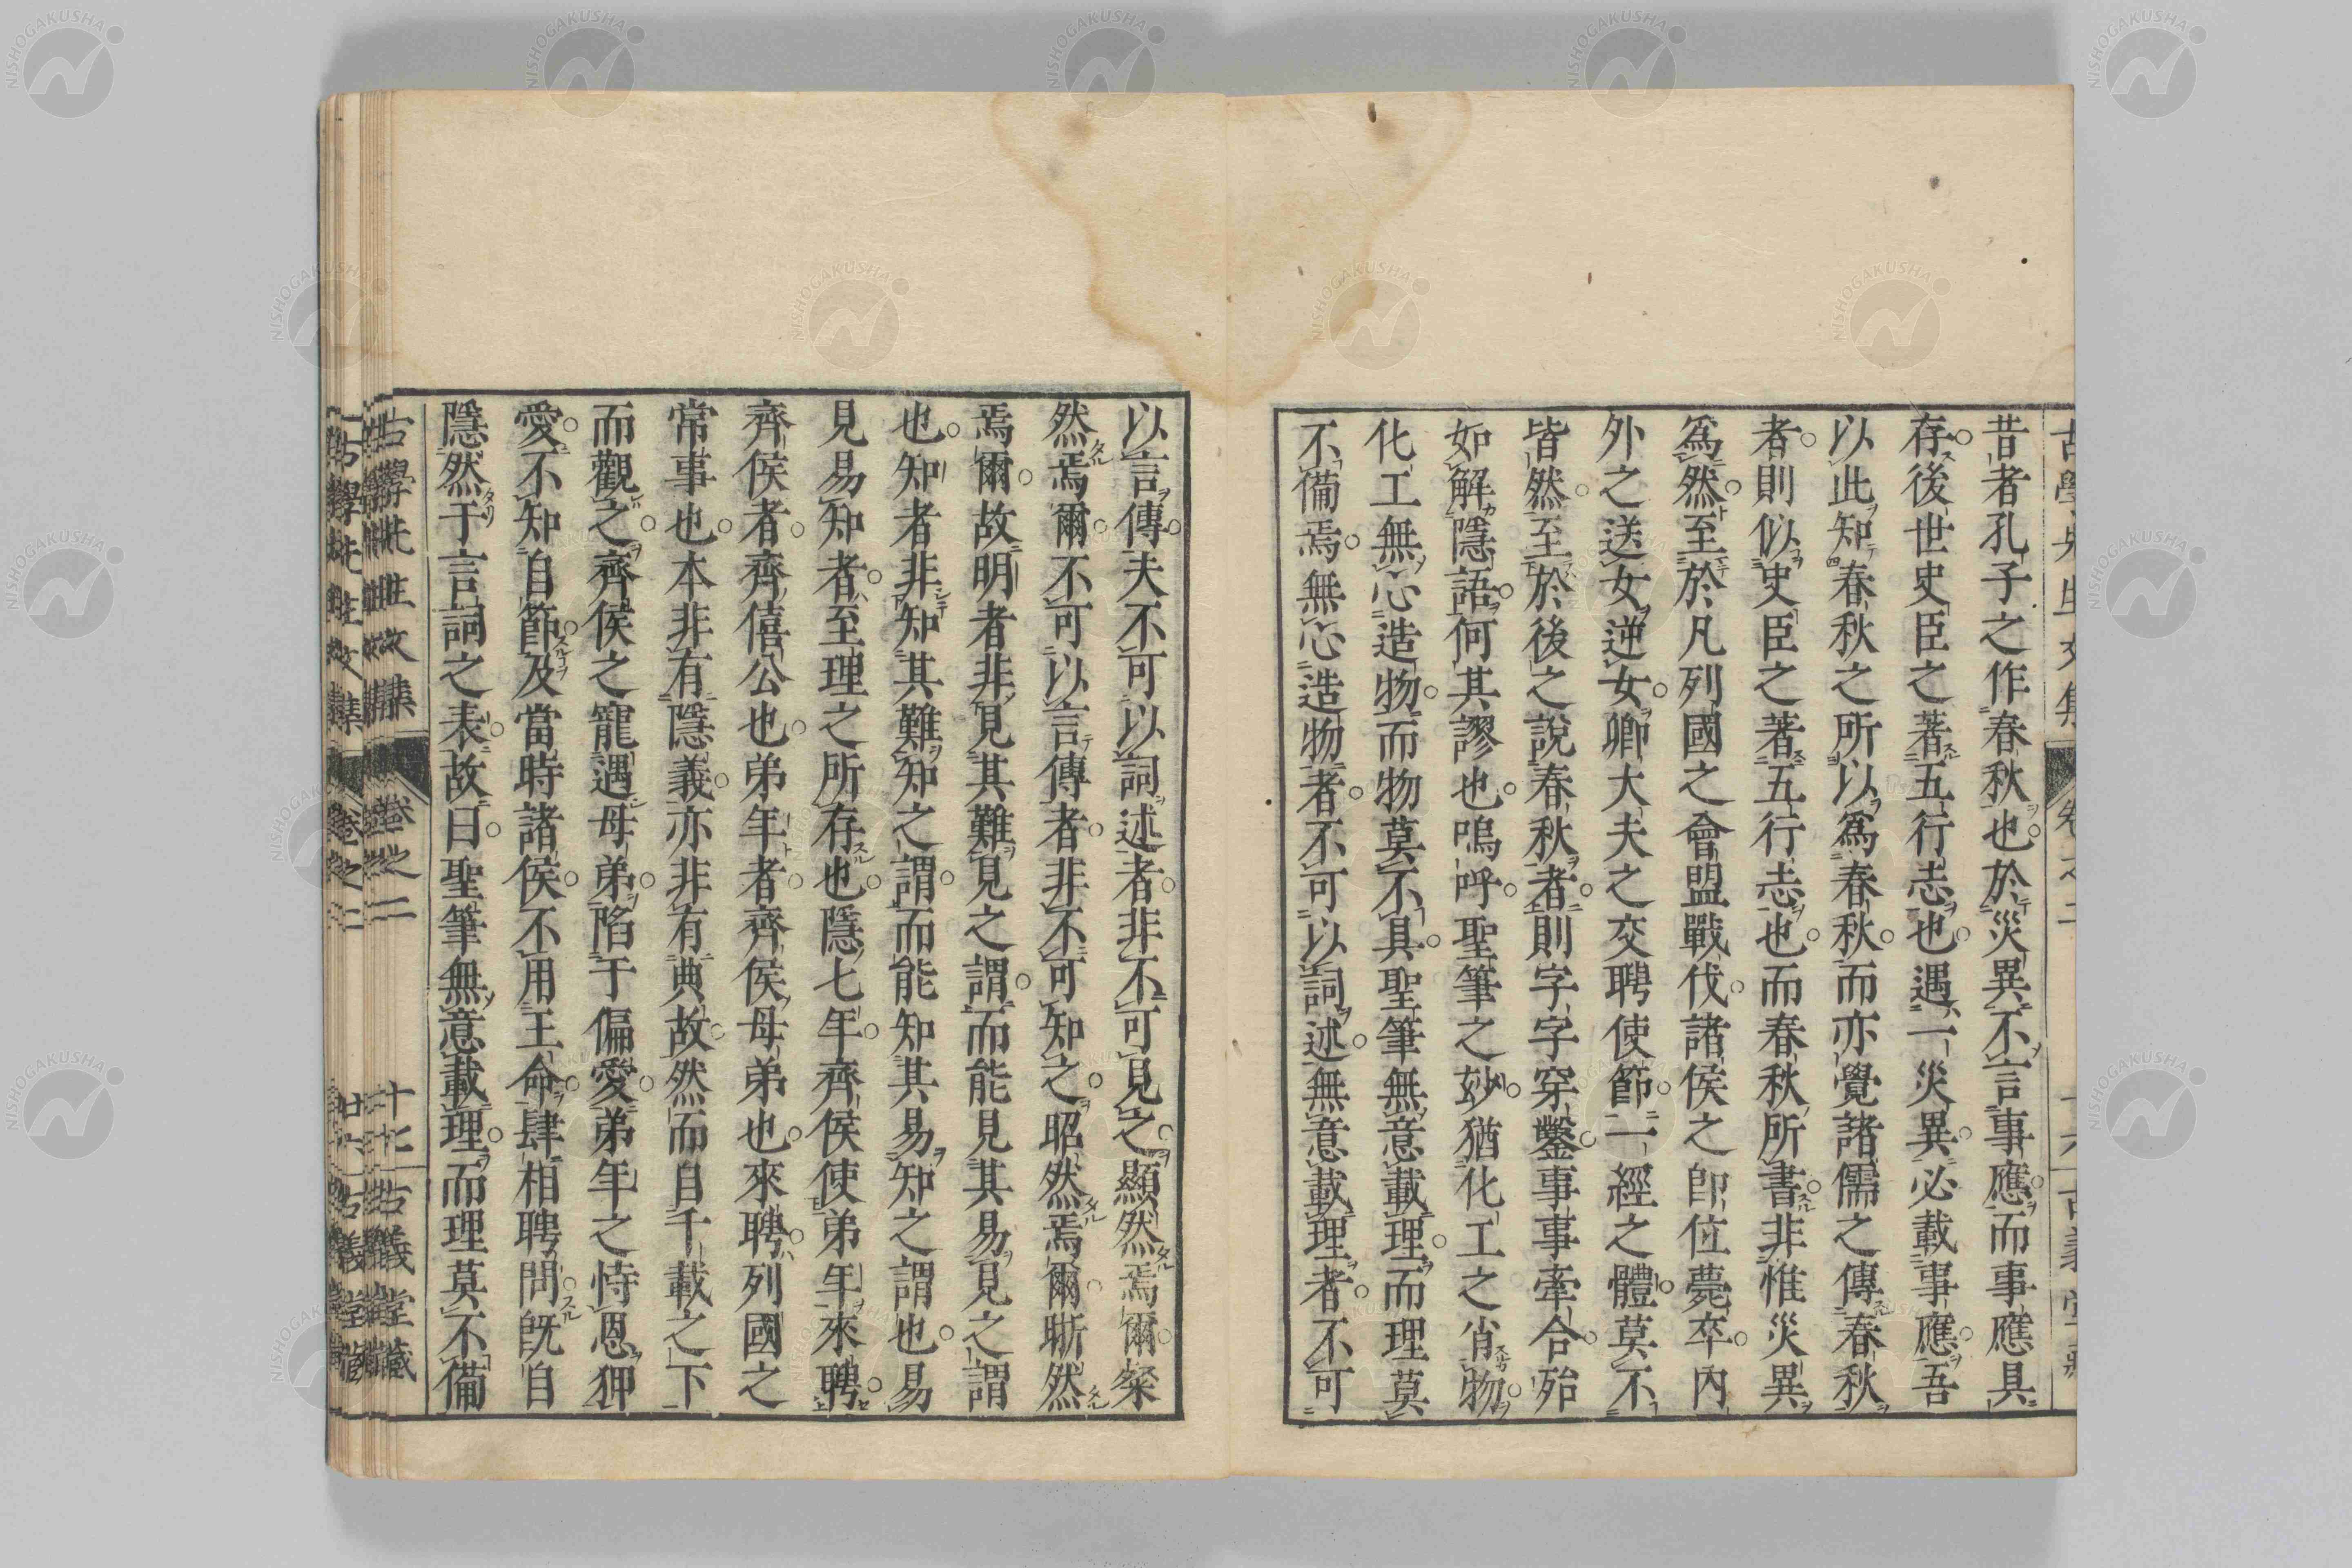 昔者孔子之作春秋也。於災異不言事應。而事應具
存。後世史臣之著五行志也。遇一災異。必載事應。吾
以此知春秋之所以爲春秋。而亦覺諸儒之傳春秋
者。則似史臣之著五行志也。而春秋所書。非惟災異
爲然。至於凡列國之會盟戰伐。諸侯之卽位薨卒。內
外之送女逆女。卿大夫之交聘使節。一經之體。莫不
皆然。至於後之說春秋者。則字字穿鑿。事事牽合。殆
如解隱語。何其謬也。嗚呼。聖筆之妙。猶化工之肖物。
化工無心造物。而物莫不具。聖筆無意載理。而理莫
不備焉。無心造物者。不可以詞述。無意載理者。不可
以言傳。夫不可以詞述者。非不可見之。顯然焉爾。粲
然焉爾。不可以言傳者。非不可知之。昭然焉爾。晰然
焉爾。故明者非見其難見之謂。而能見其易見之謂
也。知者非知其難知之謂。而能知其易知之謂也。易
見易知者。至理之所存也。隱七年。齊侯使弟年來聘。
齊侯者。齊僖公也。弟年者。齊侯母弟也。來聘。列國之
常事也。本非有隱義。亦非有典故。然而自千載之下
而觀之。齊侯之寵遇母弟。陷于偏愛。弟年之恃恩狎
愛。不知自節。及當時諸侯。不用王命。肆相聘問。旣自
隱然于言詞之表。故曰。聖筆無意載理。而理莫不備
古學先生文集 卷之二 十七 古義堂藏